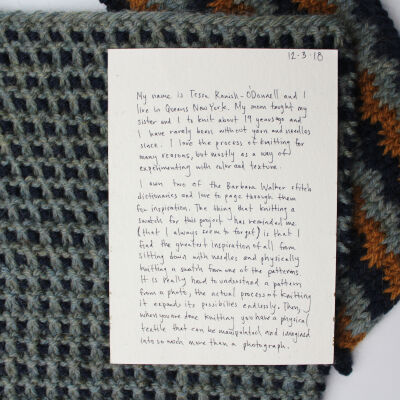 12-3-18
My name is Tessa Ranish-O'Donnell and I
live in Queens New York. My mom taught my
sister and I to knit about 19 years ago and
I have rarely been without yarn and needles
since. I love the process of knitting for
many reasons, but mostly as a way of
experimenting with color and texture.
I own two of the Barbara Walker stitch
dictionaries and love to page through them
for inspiration. The thing that knitting a
swatch for this project has reminded me
(that I always seem to forget) is that I
find the greatest inspiration of all from
sitting down with needles and physically
knitting a swatch from one of the patterns.
It is really hard to understand a pattern
from a photo, the actual process of knitting
it expands its possibilies endlessly. Then,
when you are done knitting you have a physical
textile that can be manipulated and imagined
into so much more than a photograph.